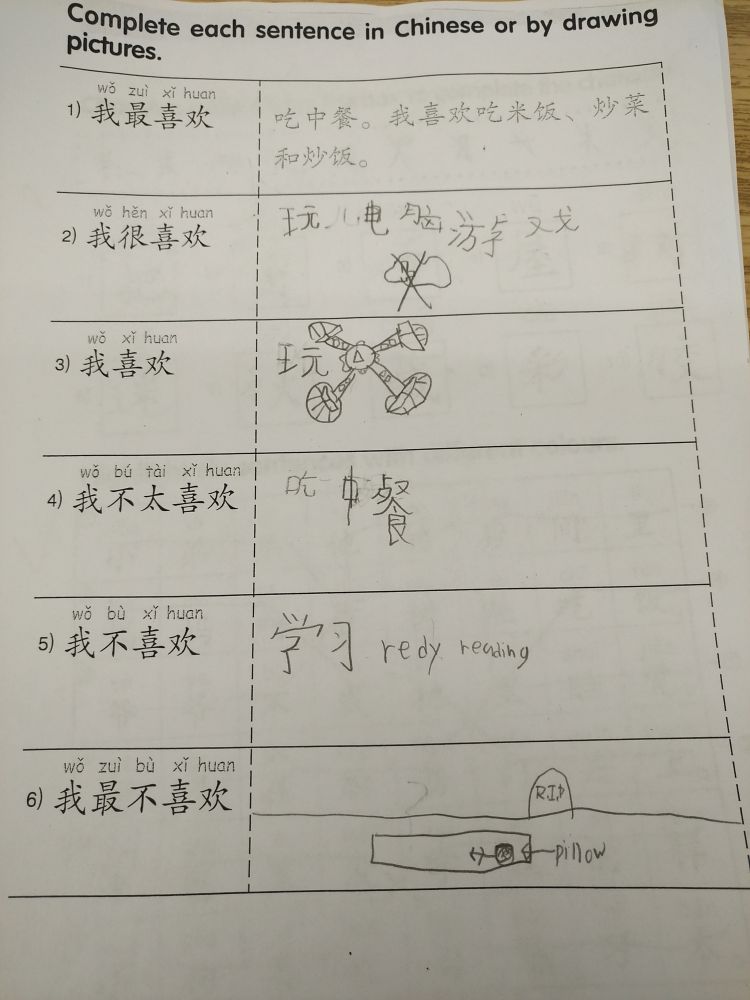 Complete each sentence in Chinese or by drawing
pictures.
wǒ zuì xǐ huan
1) 我最喜欢
吃中餐。我喜欢吃米饭、炒菜
和炒饭。
wǒ hěn xǐ huan
2) 我很喜欢
玩 电脑游 又戈
wǒ xǐ huan
3) 我喜欢
玩
wǒ bú tài xǐ huan
4) 我不太喜欢
吃中餐
wǒ bù xǐ huan
5) 我不喜欢
学习 redy reading
wǒ zuì bù xǐ huan
6) 我最不喜欢
R.I.P
pillow